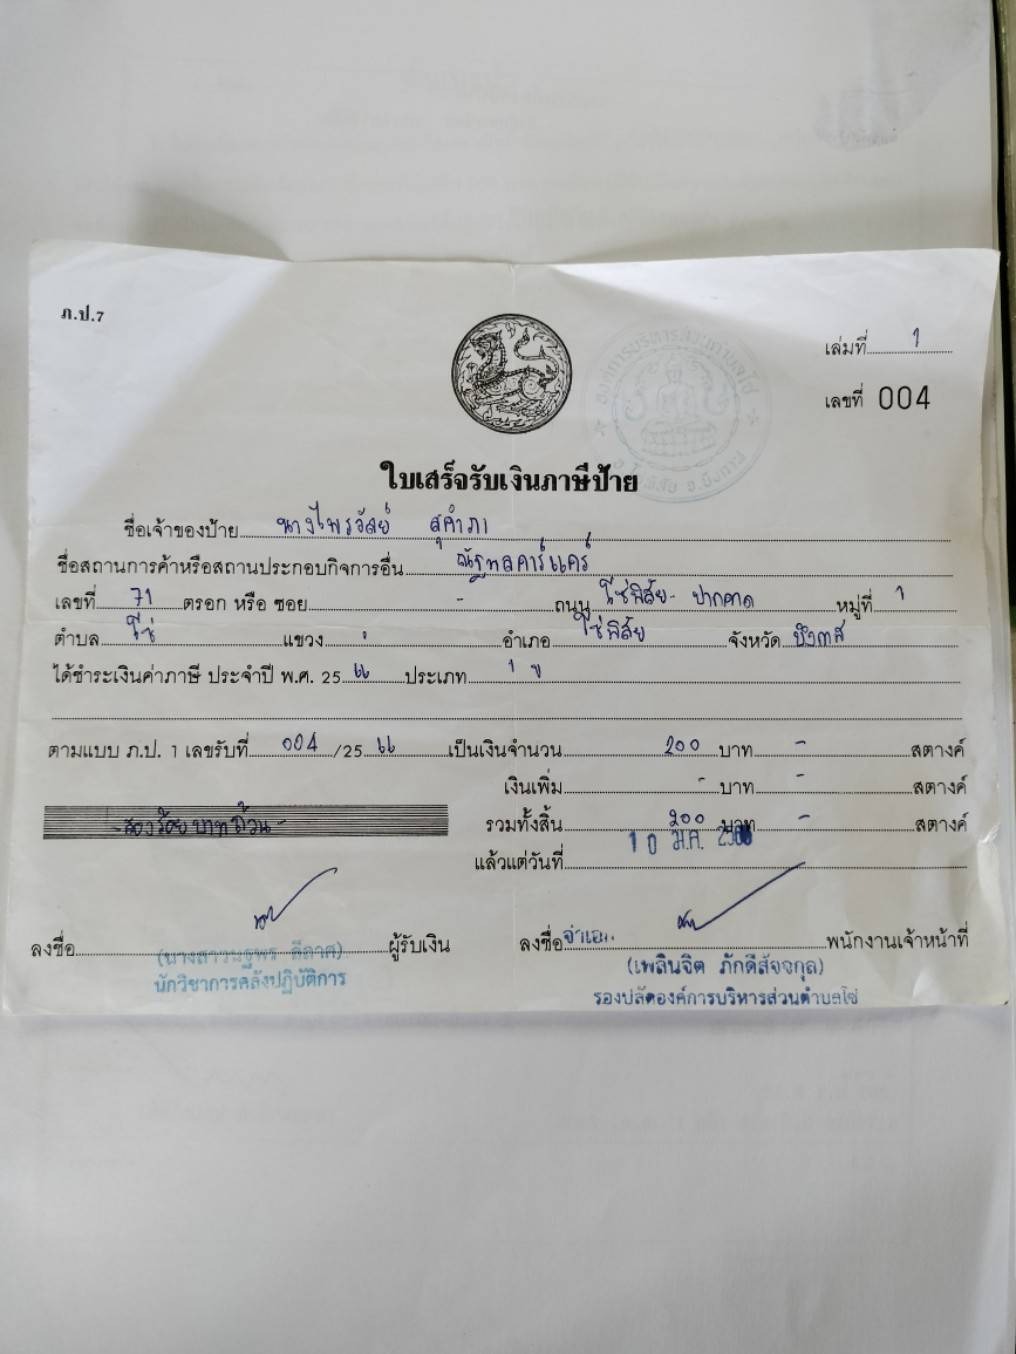 ภ.ป.7
เล่มที่ 1
เลขที่ 004
ใบเสร็จรับเงินภาษีป้าย
ชื่อเจ้าของป้าย นางไพรวัลย์ สุคำภา
ชื่อสถานการค้าหรือสถานประกอบกิจการอื่น ณัฐพลคาร์แคร์
เลขที่ 71 ตรอก หรือ ซอย - ถนน โซ่พิสัย - ปากคาด หมู่ที่ 1
ตำบล โซ่ แขวง อำเภอ โซ่พิสัย จังหวัด
ได้ชำระเงินค่าภาษี ประจำปี พ.ศ. 25 ๖๖ ประเภท 1 ข
ตามแบบ ภ.ป. 1 เลขรับที่ 004 /25 ๖๖ เป็นเงินจำนวน ๒๐๐ บาท - สตางค์
เงินเพิ่ม - บาท - สตางค์
-สองร้อยบาทถ้วน- รวมทั้งสิ้น ๒๐๐ บาท - สตางค์
แล้วแต่วันที่ 10 ม.ค.
ลงชื่อ ผู้รับเงิน ลงชื่อ จ่าเอก พนักงานเจ้าหน้าที่
(นางสาวนฐพร ลีลาศ) (เพลินจิต ภักดีสัจจกุล)
นักวิชาการคลังปฏิบัติการ รองปลัดองค์การบริหารส่วนตำบลโซ่
องค์การบริหารส่วนตำบลโซ่
อ.โซ่พิสัย จ.บึงกาฬ